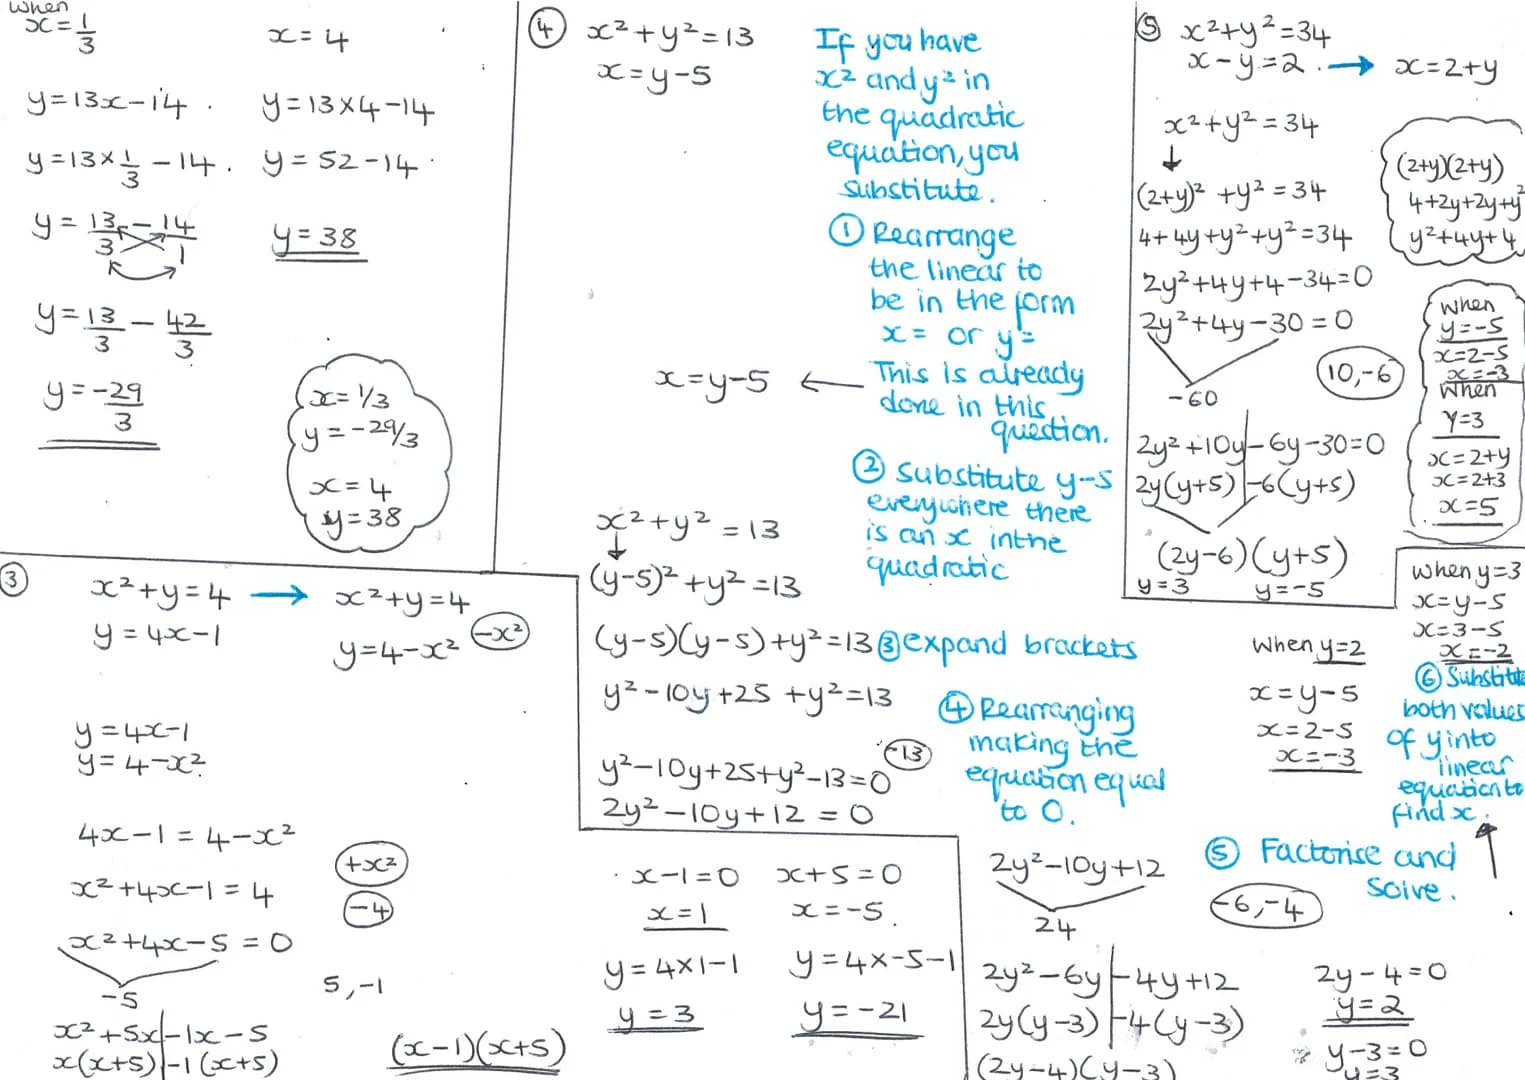 when
x = 1/3
y = 13x - 14
y = 13 × 1/3 - 14
y = 13/3 - 14/1
y = 13/3 - 42/3
y = -29/3
x = 4
y = 13 × 4 - 14
y = 52 - 14
y = 38
x = 1/3
y = -29/3
x = 4
y = 38
③
x² + y = 4 → x² + y = 4
y = 4x - 1
y = 4 - x² (-x²)
y = 4x - 1
y = 4 - x²
4x - 1 = 4 - x²
(+x²)
x² + 4x - 1 = 4
(-4)
x² + 4x - 5 = 0
-5
5, -1
x² + 5x | - 1x - 5
x(x+5) | -1(x+5)
(x-1)(x+5)
x - 1 = 0
x = 1
y = 4×1-1
y = 3
x + 5 = 0
x = -5
y = 4×-5-1
y = -21
④ x² + y² = 13
x = y - 5
If you have
x² and y² in
the quadratic
equation, you
substitute.
① Rearrange
the linear to
be in the form
x = or y =
This is already
done in this
question.
x = y - 5 ←
② Substitute y-5
everywhere there
is an x in the
quadratic
x² + y² = 13
↓
(y-5)² + y² = 13
(y-5)(y-5) + y² = 13 ③ expand brackets
y² - 10y + 25 + y² = 13
④ Rearranging
making the
equation equal
to 0.
(-13)
y² - 10y + 25 + y² - 13 = 0
2y² - 10y + 12 = 0
2y² - 10y + 12
24
⑤ Factorise and
solve.
-6, -4
2y² - 6y | - 4y + 12
2y(y-3) | -4(y-3)
(2y-4)(y-3)
2y - 4 = 0
y = 2
y - 3 = 0
y = 3
when y = 2
x = y - 5
x = 2 - 5
x = -3
when y = 3
x = y - 5
x = 3 - 5
x = -2
⑥ Substitute
both values
of y into
linear
equation to
find x.
⑤ x² + y² = 34
x - y = 2. → x = 2 + y
x² + y² = 34
↓
(2+y)² + y² = 34
4 + 4y + y² + y² = 34
2y² + 4y + 4 - 34 = 0
2y² + 4y - 30 = 0
-60
10, -6
2y² + 10y | - 6y - 30 = 0
2y(y+5) | -6(y+5)
(2y-6)(y+5)
y = 3 y = -5
(2+y)(2+y)
4 + 2y + 2y + y²
y² + 4y + 4
when
y = -5
x = 2 - 5
x = -3
when
y = 3
x = 2 + y
x = 2 + 3
x = 5